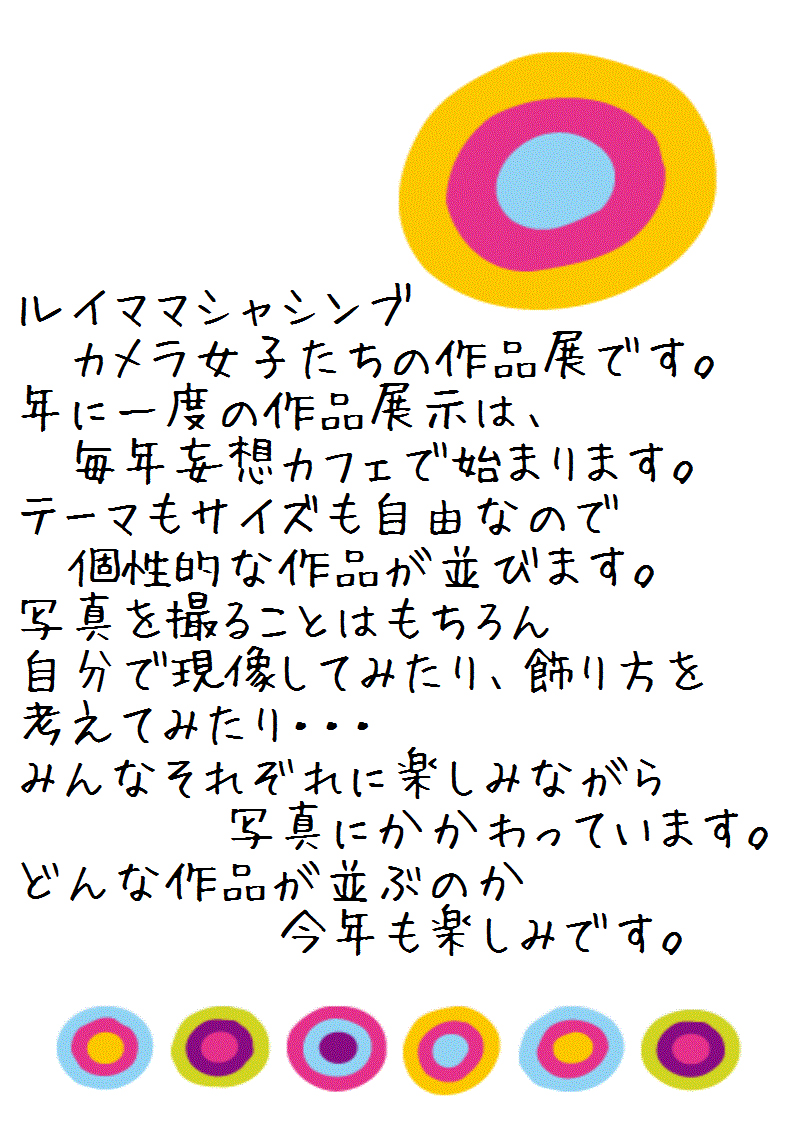 ルイママシャシンブ
カメラ女子たちの作品展です。
年に一度の作品展示は、
毎年妄想カフェで始まります。
テーマもサイズも自由なので
個性的な作品が並びます。
写真を撮ることはもちろん
自分で現像してみたり、飾り方を
考えてみたり・・・
みんなそれぞれに楽しみながら
写真にかかわっています。
どんな作品が並ぶのか
今年も楽しみです。